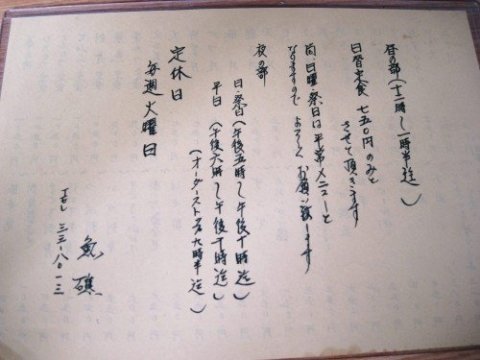 昼の部(十二時〜一時半迄)
日替定食 七五〇円のみと
させて頂きます
尚、日曜・祭日は平常メニューと
なりますので よろしく お願い致します
夜の部
日・祭日(午後五時〜午後十時迄)
平日(午後六時〜午後十時迄)
(オーダーストップ九時半迄)
定休日
毎週火曜日
魚礁
TEL 三三-八〇一三